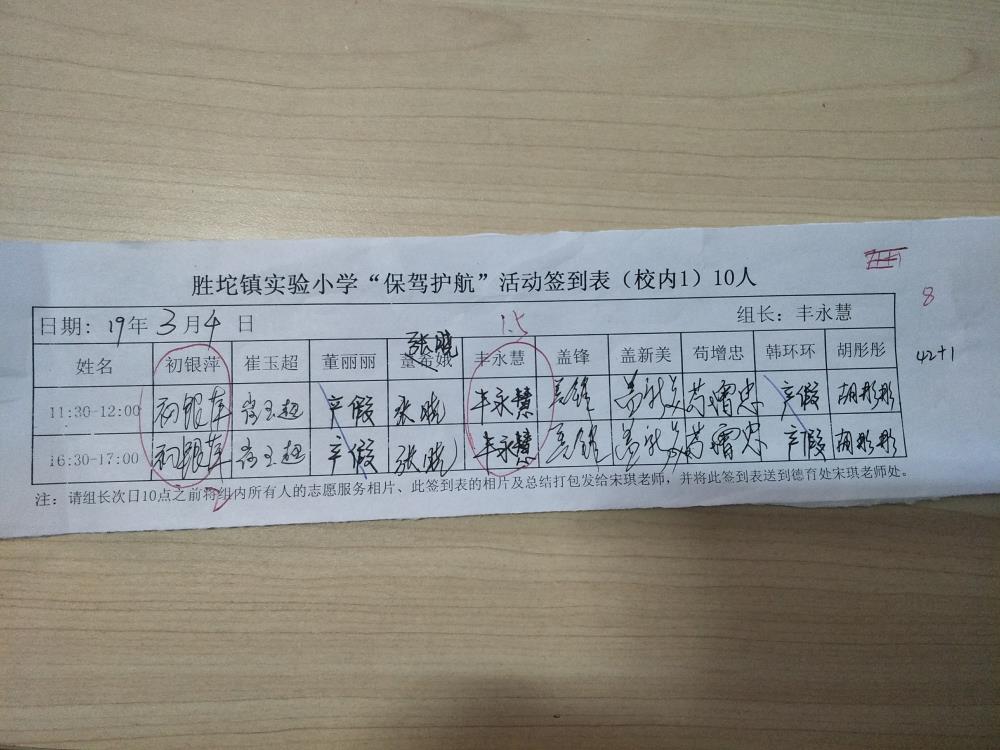 胜坨镇实验小学“保驾护航”活动签到表（校内1）10人
8
日期: 19年 3月4日 组长: 丰永慧
1.5
张晓
42+1
姓名 初银萍 崔玉超 董丽丽 董希娥 丰永慧 盖锋 盖新美 苟增忠 韩环环 胡彤彤
11:30-12:00 初银萍 崔玉超 产假 张晓 丰永慧 盖锋 盖新美 苟增忠 产假 胡彤彤
16:30-17:00 初银萍 崔玉超 产假 张晓 丰永慧 盖锋 盖新美 苟增忠 产假 胡彤彤
2
注: 请组长次日10点之前将组内所有人的志愿服务相片、此签到表的相片及总结打包发给宋琪老师，并将此签到表送到德育处宋琪老师处。